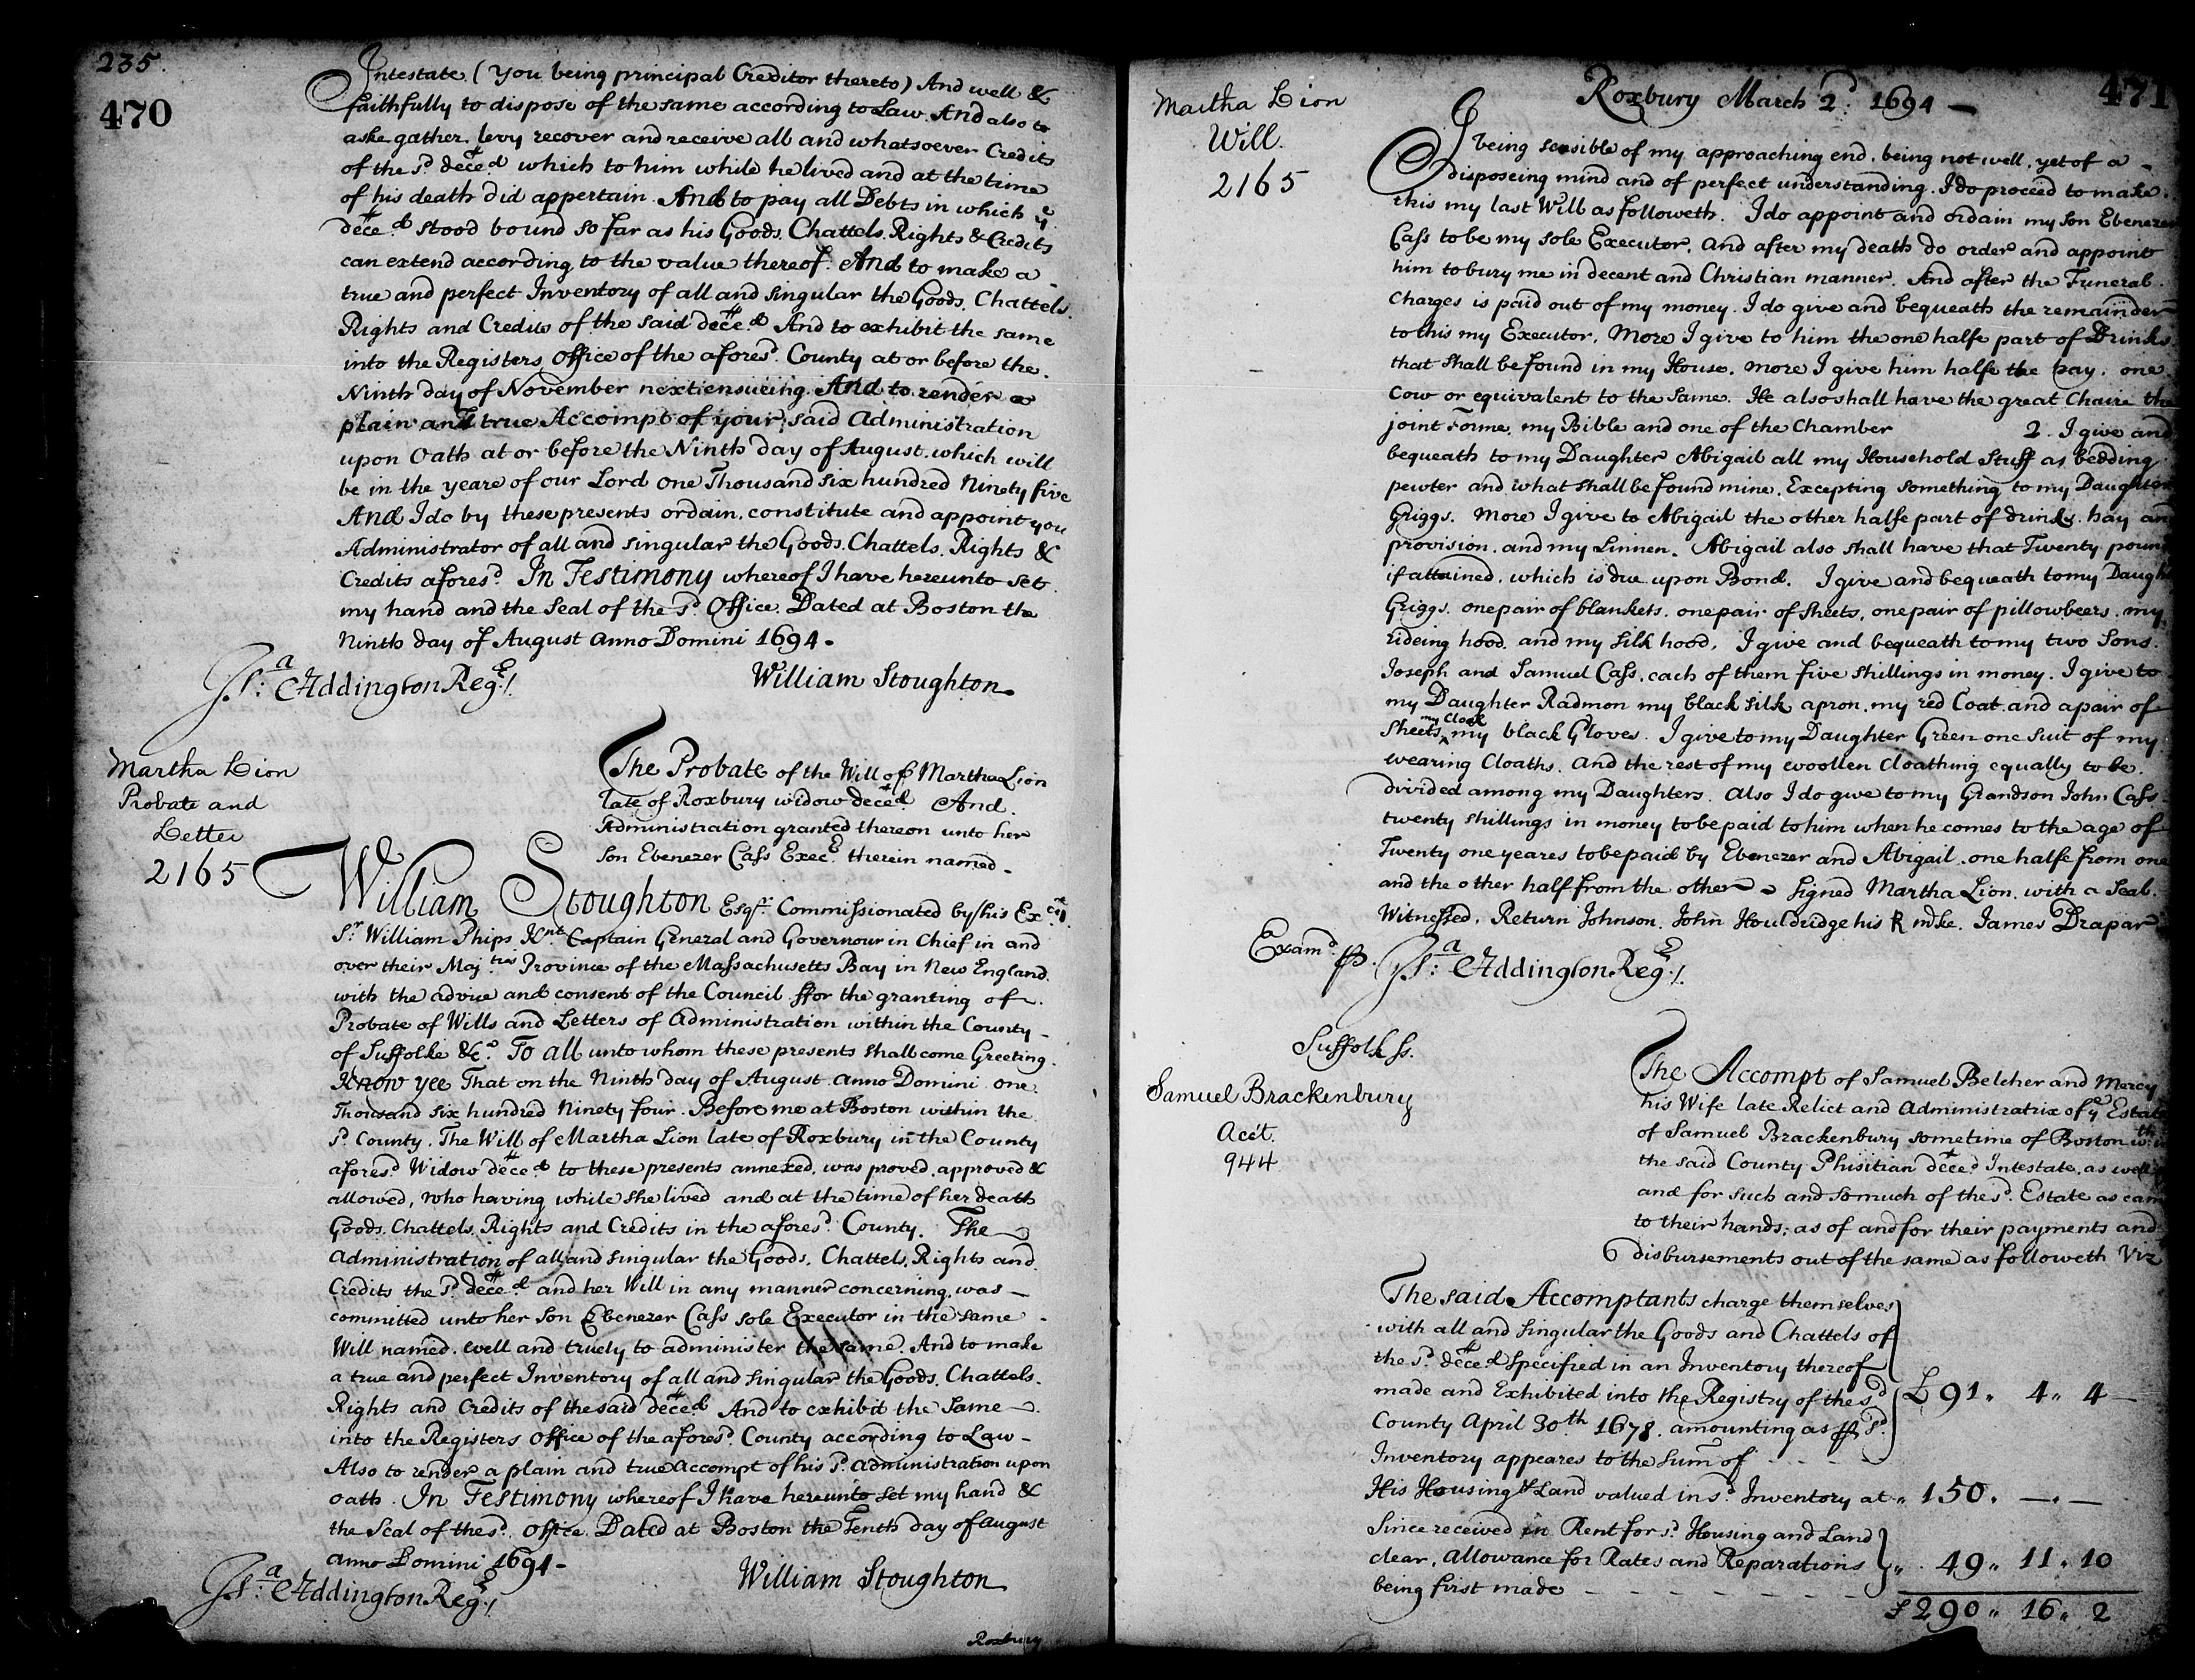 235.
470
Intestate. (You being principal Creditor thereto) And well &
faithfully to dispose of the same according to Law. And also to
aske gather. levy recover and receive all and whatsoever Credits
of the sd. deceed. which to him while he lived and at the time
of his death did appertain. And to pay all Debts in which ye
deceed. stood bound so far as his Goods. Chattels. Rights & Credits
can extend according to the value thereof. And to make a
true and perfect Inventory of all and singular the Goods. Chattels.
Rights and Credits of the said deceed. And to exhibit the same
into the Registers Office of the aforesd. County at or before the.
Ninth day of November next ensueing. And to render a
plain and true Accompt of your said Administration
upon Oath at or before the Ninth day of August. which will
be in the yeare of our Lord One Thousand six hundred Ninety five
And I do by these presents ordain. constitute and appoint you
Administrator of all and singular the Goods. Chattels. Rights &
Credits aforesd. In Testimony whereof I have hereunto set
my hand and the Seal of the sd. Office. Dated at Boston the
Ninth day of August Anno Domini 1694.
Isa: Addington Regr.
William Stoughton.
Martha Lion
Probate and
Letter
2165
The Probate of the Will of Martha Lion
late of Roxbury widow deceed And.
Administration granted thereon unto her
Son Ebenezer Cass Execr. therein named.
William Stoughton Esqr. Commissionated by his Excncy.
Sr. William Phips Knt. Captain General and Governour in Chief in and
over their Majties Province of the Massachusetts Bay in New England.
with the advice and consent of the Council ffor the granting of
Probate of Wills and Letters of Administration within the County
of Suffolke &ca. To all unto whom these presents shall come Greeting.
Know yee That on the Ninth day of August Anno Domini one
Thousand six hundred Ninety four. Before me at Boston within the
sd. County. The Will of Martha Lion late of Roxbury in the County
aforesd Widow deceed to these presents annexed. was proved. approved &
allowed, who having while she lived and at the time of her death
Goods. Chattels. Rights and Credits in the aforesd. County. The
Administration of all and singular the Goods. Chattels. Rights and
Credits the sd. deceed. and her Will in any manner concerning. was
committed unto her Son Ebenezer Cass sole Executor in the same
Will named. well and truely to administer the same. And to make
a true and perfect Inventory of all and singular the Goods. Chattels.
Rights and Credits of the said deceed. And to exhibit the same
into the Registers Office of the aforesd. County according to Law
Also to render a plain and true Accompt of his sd. Administration upon
oath. In Testimony whereof I have hereunto set my hand &
the Seal of the sd. Office Dated at Boston the Tenth day of August
Anno Domini 1694
Isa: Addington Regr.
William Stoughton
Roxbury
471
Martha Lion
Will.
2165
Roxbury March 2d. 1694
I being sensible of my approaching end. being not well, yet of a
disposeing mind and of perfect understanding. I do proceed to make.
this my last Will as followeth. I do appoint and ordain my son Ebenezer
Cass to be my sole Executor. And after my death do order and appoint
him to bury me in decent and Christian manner. And after the Funeral.
Charges is paid out of my money. I do give and bequeath the remainder
to this my Executor. More I give to him the one halfe part of Drinks.
that shall be found in my House. more I give him halfe the hay. one
Cow or equivalent to the same. He also shall have the great Chaire the
joint Forme. my Bible and one of the Chamber 2. I give and
bequeath to my Daughter Abigail all my Household Stuff as bedding
pewter and what shall be found mine. Excepting something to my Daughter
Griggs. More I give to Abigail the other halfe part of drinks. hay and
provision. and my Linnen. Abigail also shall have that Twenty pound
if attained. which is due upon Bond. I give and bequeath to my Daughte
Griggs. one pair of blankets. one pair of Sheets. one pair of pillowbeers. my
rideing hood. and my silk hood. I give and bequeath to my two Sons
Joseph and Samuel Cass. each of them five shillings in money. I give to
my Daughter Radmon my black silk apron. my red Coat. and a pair of
my Cloak
Sheets, my black Gloves. I give to my Daughter Green one Suit of my
wearing Cloaths. And the rest of my woollen Cloathing equally to be.
divided among my Daughters. Also I do give to my Grandson John Cass
twenty shillings in money to be paid to him when he comes to the age of
Twenty one yeares to be paid by Ebenezer and Abigail. one halfe from one
and the other half from the other Signed Martha Lion. with a Seal.
Witnessed. Return Johnson. John Houldridge his R mke. James Drapar
Examd. p. Isa: Addington Regr.
Suffolk ss.
Samuel Brackenbury
Acct.
944
The Accompt of Samuel Belcher and Mercy
his Wife late Relict and Administratrix of ye Estate
of Samuel Brackenbury sometime of Boston wthin
the said County Phisitian deceed. Intestate. as well
and for such and so much of the sd. Estate as came
to their hands; as of and for their payments and
disbursements out of the same as followeth Viz
The said Accomptants charge themselves
with all and singular the Goods and Chattels of
the sd. deceed specified in an Inventory thereof
made and Exhibited into the Registry of the sd
County April 30th. 1678. amounting as p sd. £91. 4. 4
Inventory appeares to the sum of
His Housing & Land valued in sd. Inventory at 150. — . —
Since received in Rent for sd. Housing and Land
clear, Allowance for Rates and Reparations 49. 11. 10
being first made
£290. 16. 2